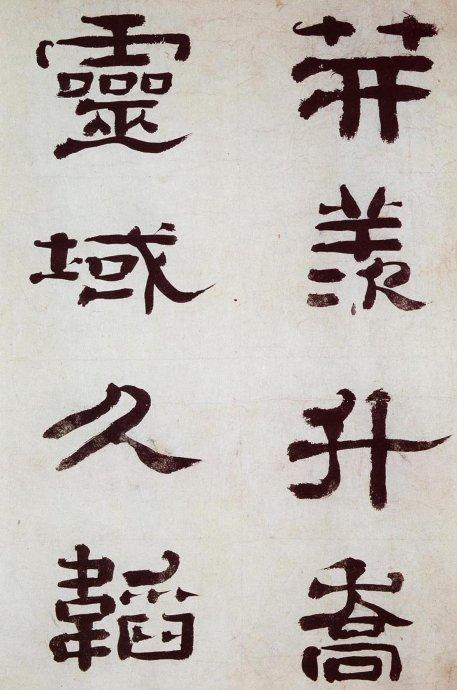 羨升喬
靈域久韜